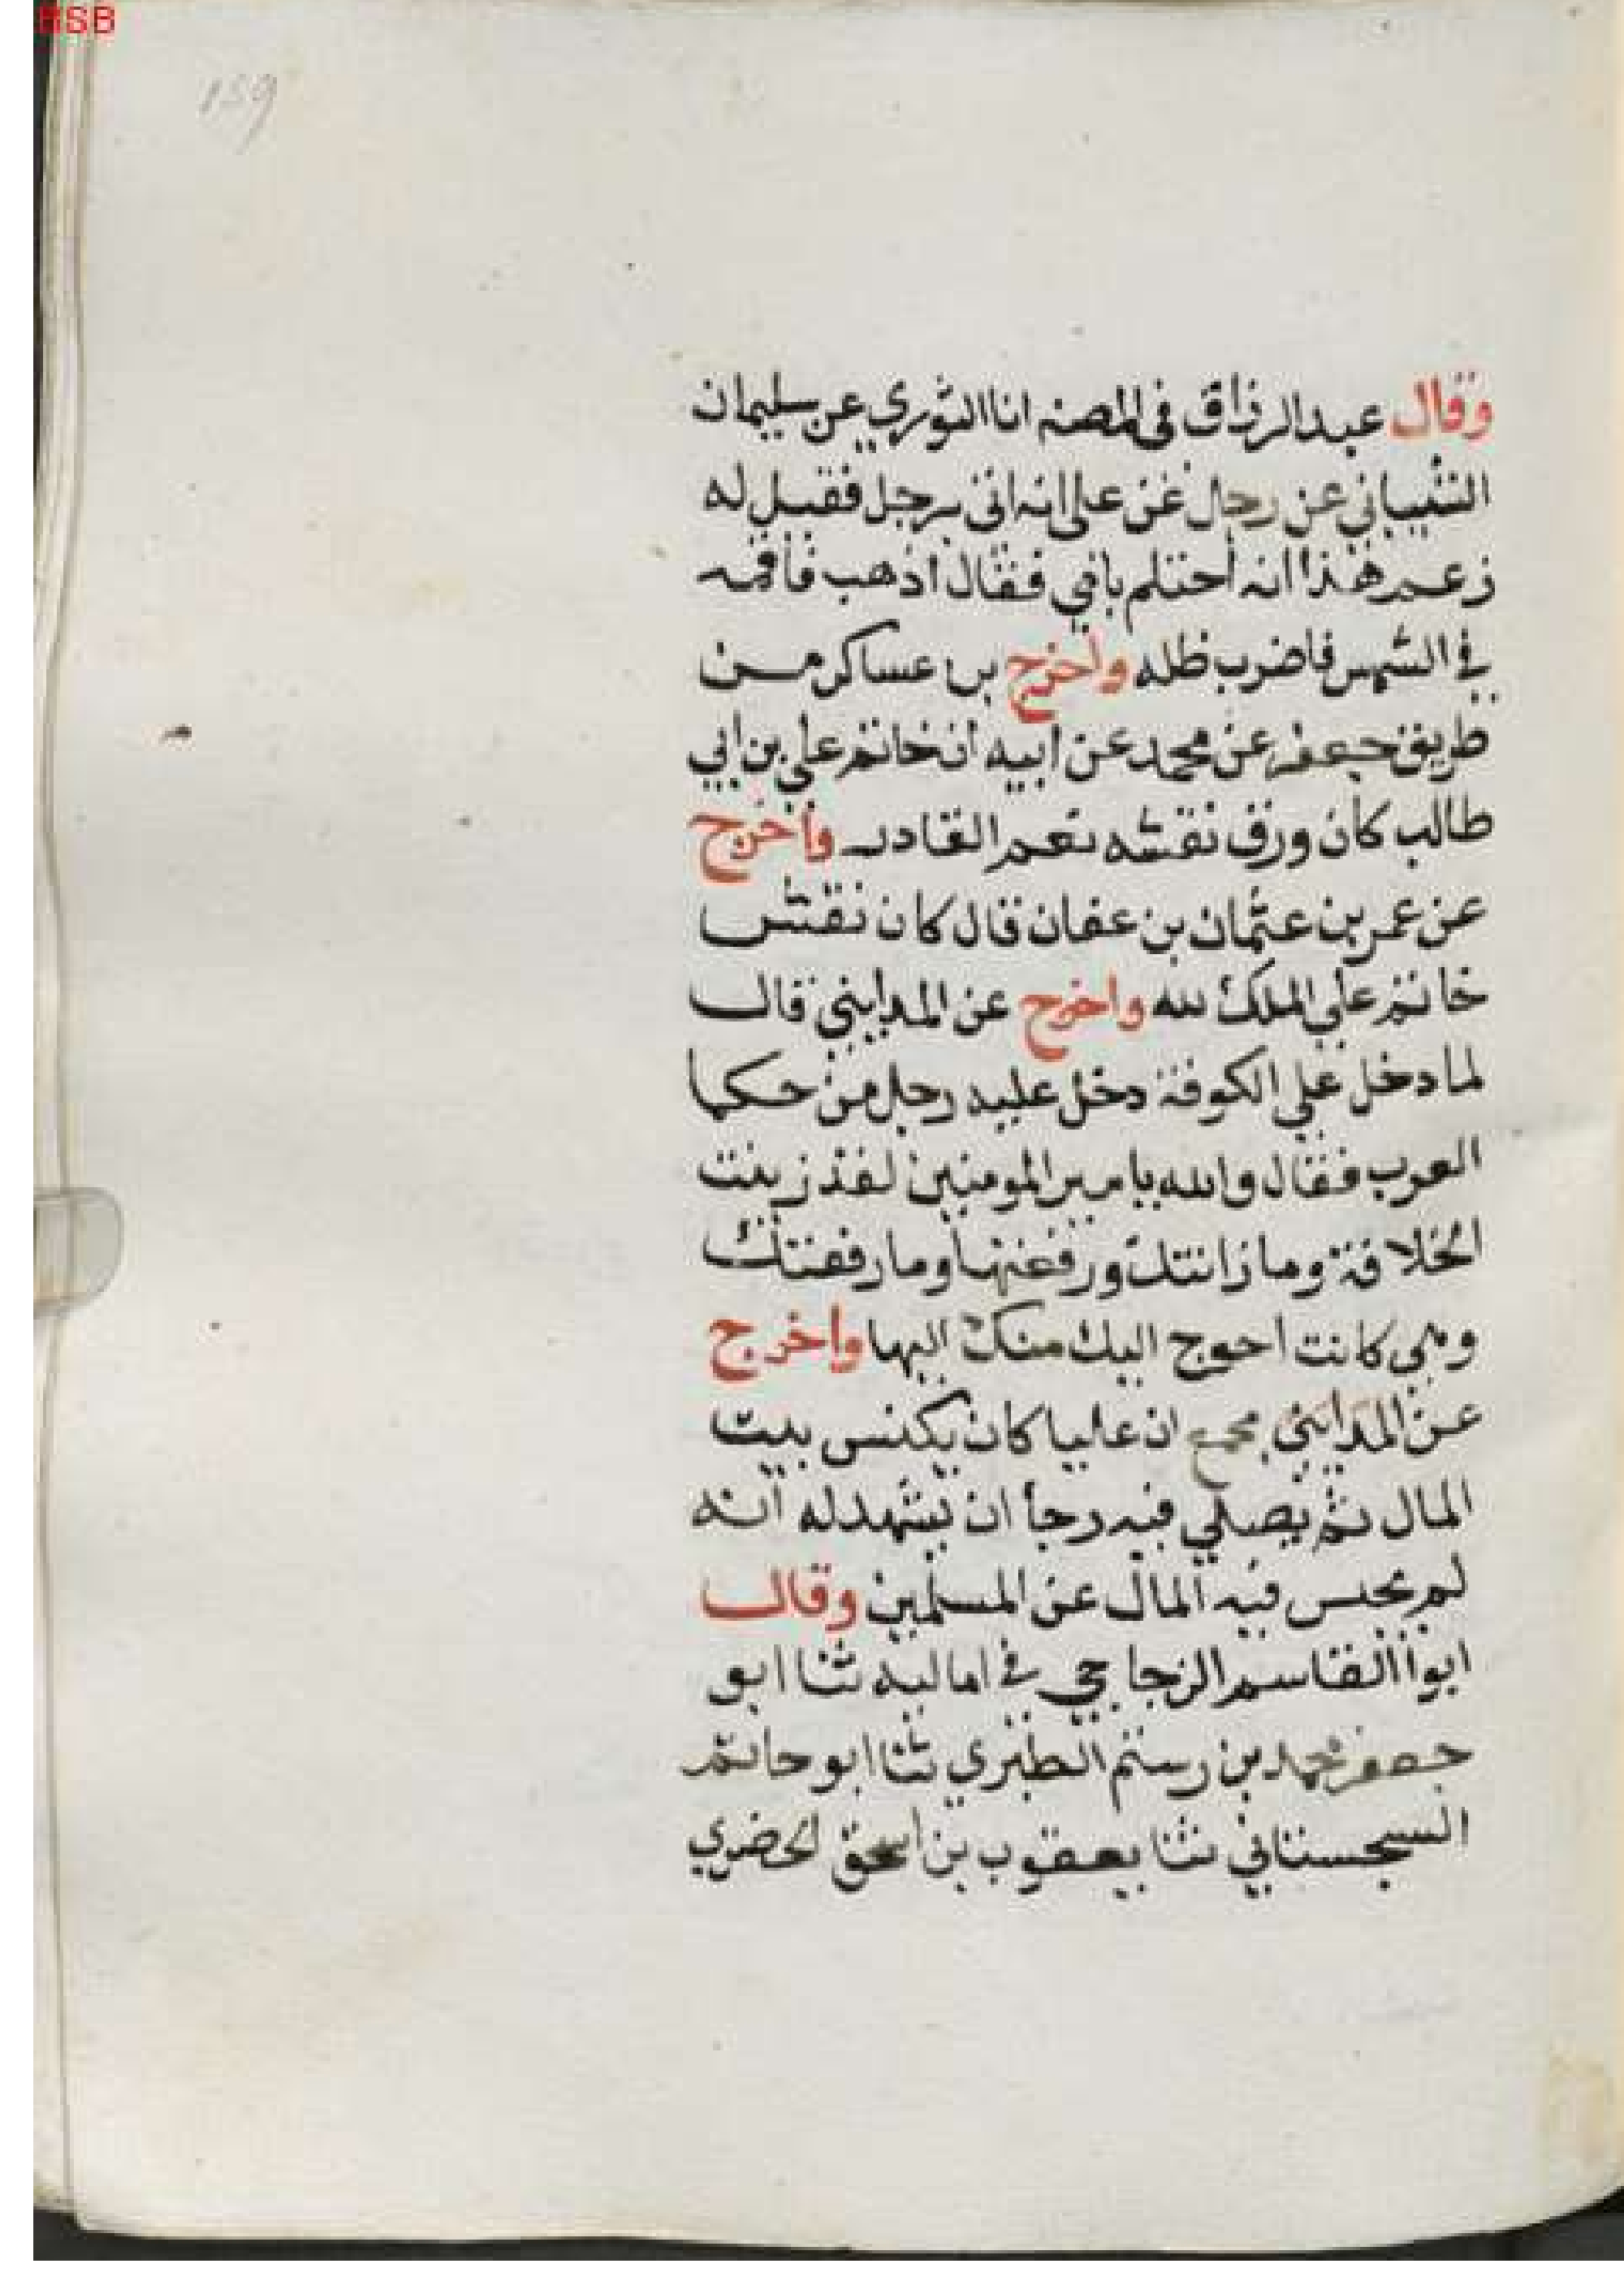 BSB
159
وقال عبد الرزاق فى المصنه انا الثوري عن سليمان
الشيباني عن رجل عن على انه اتى برجل فقيل له
زعم هذا انه احتلم بامي فقال اذهب فاقمه
في الشمس فاضرب ظله واخرج بن عساكر من
طريق جعفر عن محمد عن ابيه ان خاتم علي بن ابي
طالب كان ورق نقشه نعم القادر واخرج
عن عمر بن عثمان بن عفان قال كان نقش
خاتم علي الملك لله واخرج عن المدايني قال
لما دخل علي الكوفة دخل عليه رجل من حكما
العرب فقال والله يامير المومنين لقد زينت
الخلافة وما زانتك ورفعتها وما رفعتك
وهي كانت احوج اليك منك اليها واخرج
عن المدايني مجمع ان عليا كان يكنس بيت
المال ثم يصلي فيه رجا ان يشهد له انه
لم يحبس فيه المال عن المسلمين وقال
ابوا القاسم الزجاجي في اماليه ثنا ابو
جعفر محمد بن رستم الطبري ثنا ابو حاتم
السجستاني ثنا يعقوب بن اسحق الحضري